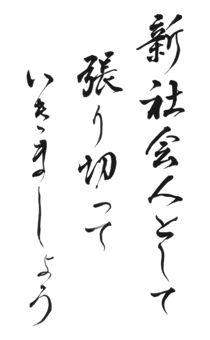 新社会人として
張り切って
いきましょう